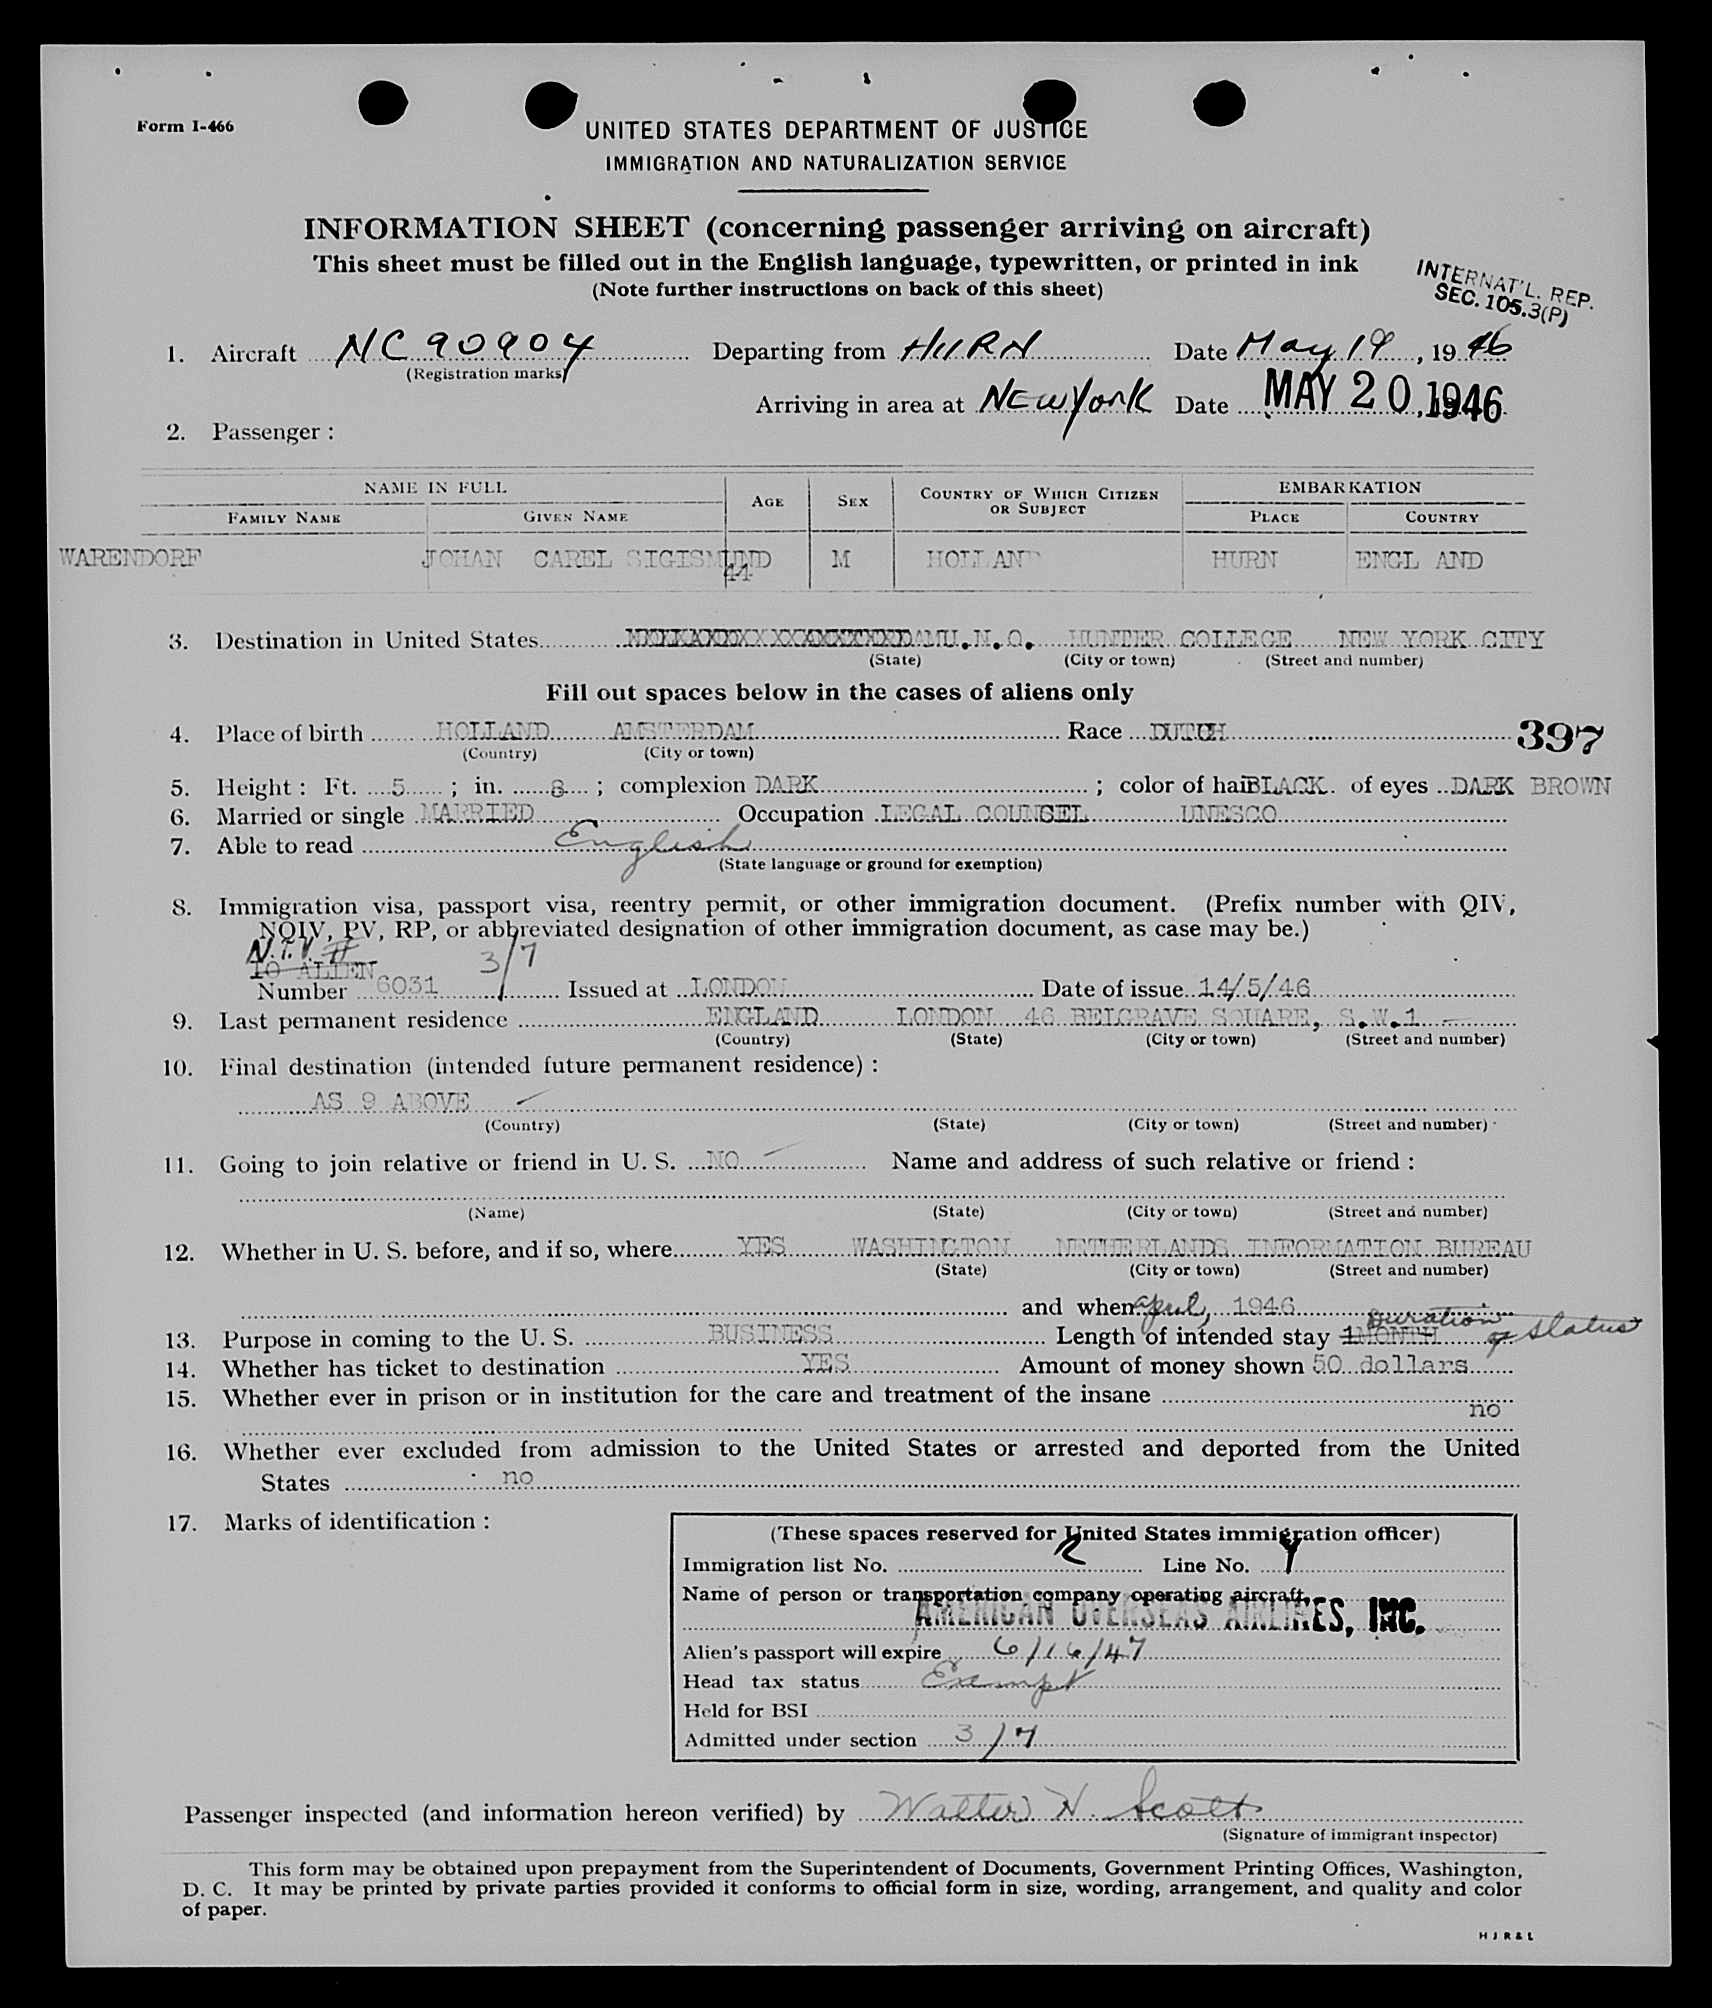 Form I-466
UNITED STATES DEPARTMENT OF JUSTICE
IMMIGRATION AND NATURALIZATION SERVICE
INFORMATION SHEET (concerning passenger arriving on aircraft)
This sheet must be filled out in the English language, typewritten, or printed in ink
(Note further instructions on back of this sheet)
INTERNAT'L. REP.
SEC. 105.3(P)
1. Aircraft NC 90904 Departing from HURN Date May 19, 1946
(Registration marks)
Arriving in area at New York Date MAY 20, 1946
2. Passenger :
NAME IN FULL AGE SEX COUNTRY OF WHICH CITIZEN OR SUBJECT EMBARKATION
FAMILY NAME GIVEN NAME PLACE COUNTRY
WARENDORF JOHAN CAREL SIGISMUND 44 M HOLLAND HURN ENGL AND
3. Destination in United States U.N.O. HUNTER COLLEGE NEW YORK CITY
(State) (City or town) (Street and number)
Fill out spaces below in the cases of aliens only
4. Place of birth HOLLAND AMSTERDAM Race DUTCH 397
(Country) (City or town)
5. Height : Ft. 5 ; in. 8 ; complexion DARK ; color of hair BLACK of eyes DARK BROWN
6. Married or single MARRIED Occupation LEGAL COUNSEL UNESCO
7. Able to read English
(State language or ground for exemption)
8. Immigration visa, passport visa, reentry permit, or other immigration document. (Prefix number with QIV,
NQIV, PV, RP, or abbreviated designation of other immigration document, as case may be.)
N.I.V. #
TO ALIEN 3/7
Number 6031 Issued at LONDON Date of issue 14/5/46
9. Last permanent residence ENGLAND LONDON 46 BELGRAVE SQUARE, S.W.1
(Country) (State) (City or town) (Street and number)
10. Final destination (intended future permanent residence) :
AS 9 ABOVE
(Country) (State) (City or town) (Street and number)
11. Going to join relative or friend in U. S. NO Name and address of such relative or friend :
(Name) (State) (City or town) (Street and number)
12. Whether in U. S. before, and if so, where YES WASHINGTON NETHERLANDS INFORMATION BUREAU
(State) (City or town) (Street and number)
and when April, 1946
13. Purpose in coming to the U. S. BUSINESS Length of intended stay 1MONTH Duration of Status
14. Whether has ticket to destination YES Amount of money shown 50 dollars
15. Whether ever in prison or in institution for the care and treatment of the insane
no
16. Whether ever excluded from admission to the United States or arrested and deported from the United
States no
17. Marks of identification :
(These spaces reserved for United States immigration officer)
Immigration list No. 2 Line No. 4
Name of person or transportation company operating aircraft
AMERICAN OVERSEAS AIRLINES, INC.
Alien's passport will expire 6/16/47
Head tax status Exempt
Held for BSI
Admitted under section 3/7
Passenger inspected (and information hereon verified) by Walter N. Scott
(Signature of immigrant inspector)
This form may be obtained upon prepayment from the Superintendent of Documents, Government Printing Offices, Washington,
D. C. It may be printed by private parties provided it conforms to official form in size, wording, arrangement, and quality and color
of paper.
H J R & L